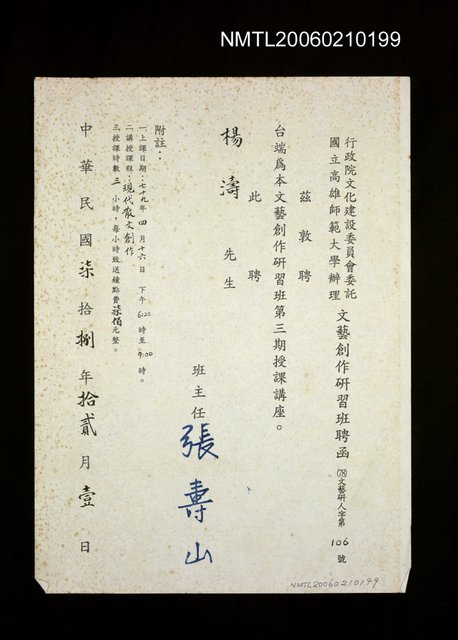 NMTL20060210199
行政院文化建設委員會委託
國立高雄師範大學辦理
文藝創作研習班聘函
(78)文藝研人字第106號
茲敦聘
台端為本文藝創作研習班第三期授課講座。
此聘
楊濤先生
班主任張壽山
附註：
一、上課日期：七十九年四月十六日下午6:20時至9:00時。
二、講授課程：現代散文創作
三、授課時數三小時，每小時致送鐘點費柒佰元整。
中華民國柒拾捌年拾貳月壹日
NMTL20060210199